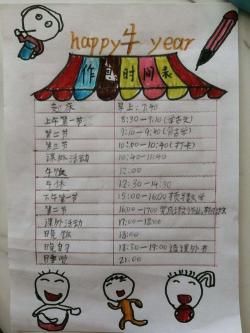 happy牛year
作息时间表
起床 早上:7:40
上午第一节 8:30-9:10(学语文)
第二节 9:10-9:40
第三节 10:00-10:40(打卡)
课外活动 10:40-11:40
午饭 12:00
午休 12:30-14:30
下午第一节 15:00-16:00 预习数学
第二节 16:00-17:00
课外活动 17:00-18:00
晚饭 18:00
晚自习 18:30-19:00 读课外书
睡觉 21:00